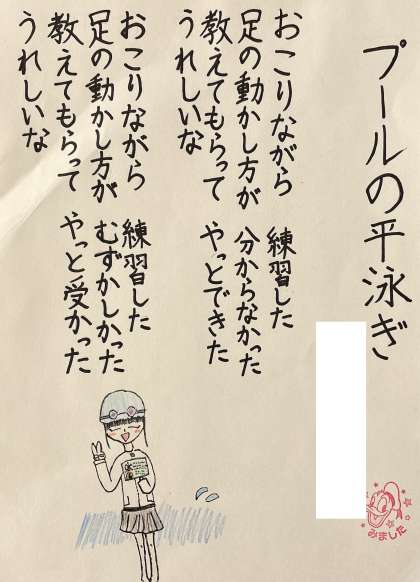 プールの平泳ぎ
おこりながら　練習した
足の動かし方が　分からなかった
教えてもらって　やっとできた
うれしいな
おこりながら　練習した
足の動かし方が　むずかしかった
教えてもらって　やっと受かった
うれしいな
みました